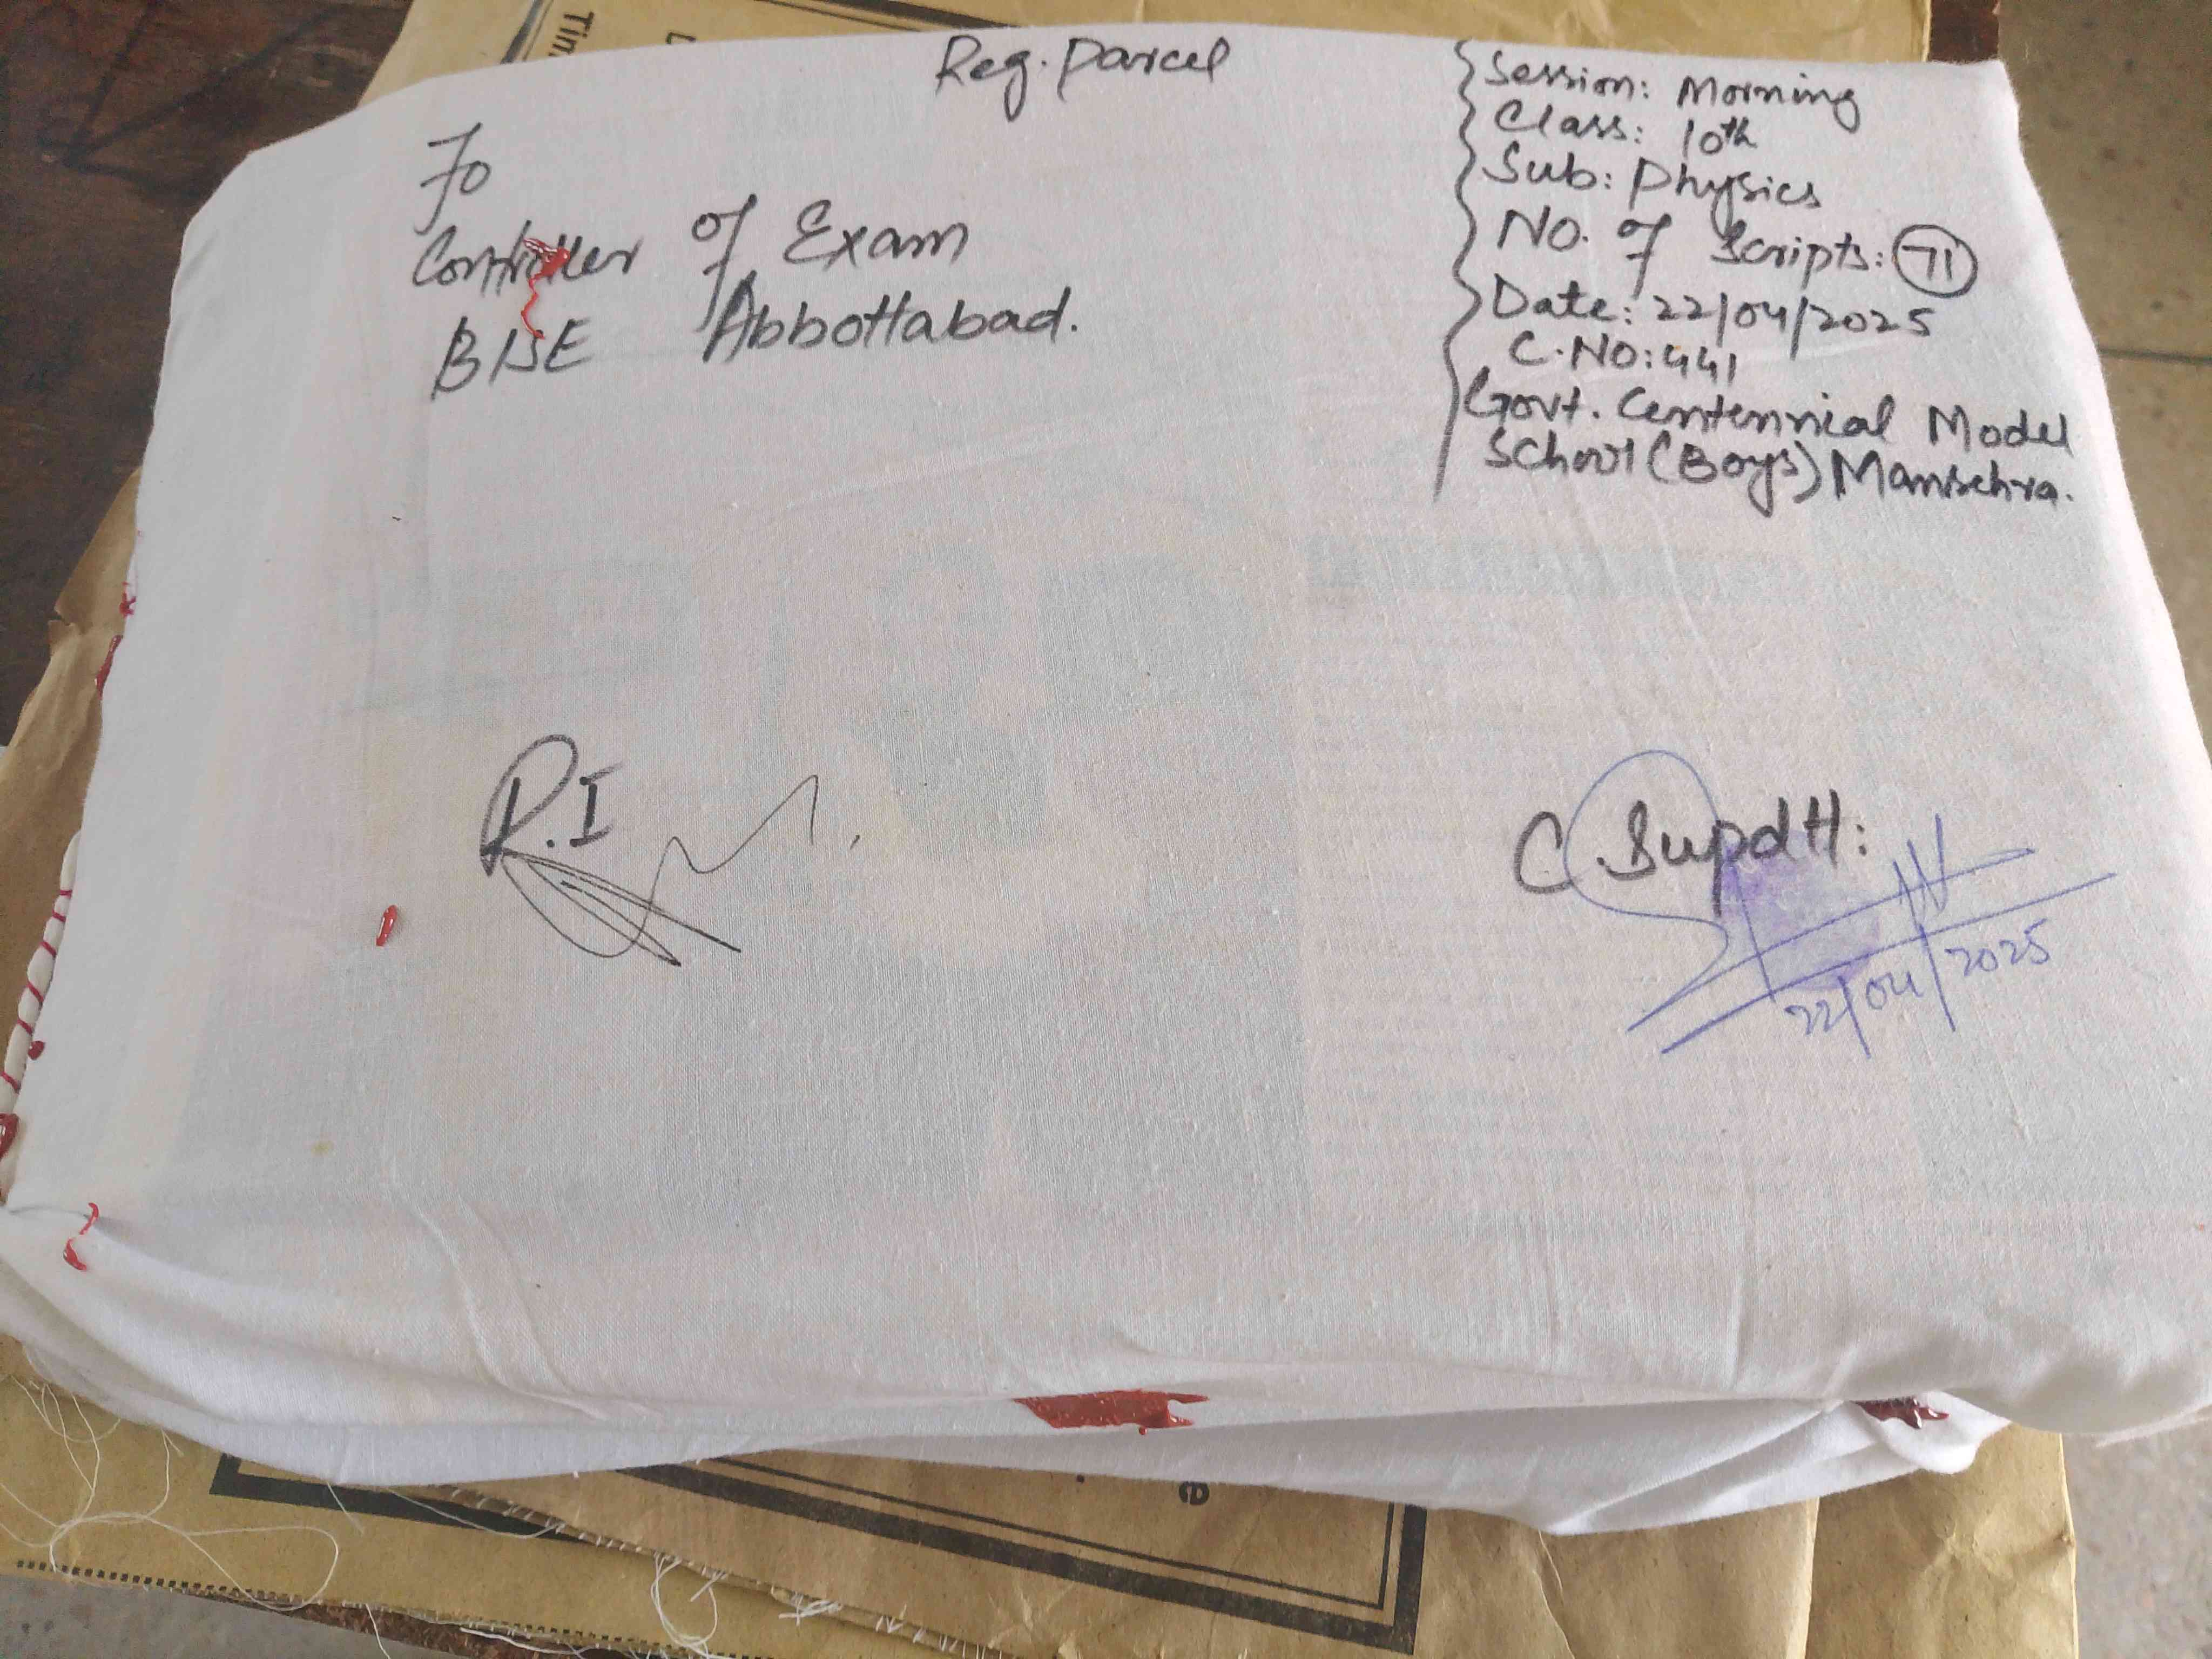 Reg. Parcel
To
Controller of Exam
BISE Abbottabad.
Session: Morning
Class: 10th
Sub: Physics
No. of Scripts: 71
Date: 22/04/2025
C.NO: 441
Govt. Centennial Model
School (Boys) Mansehra.
R.I
C.Supdtt:
22/04/2025
Tim
e